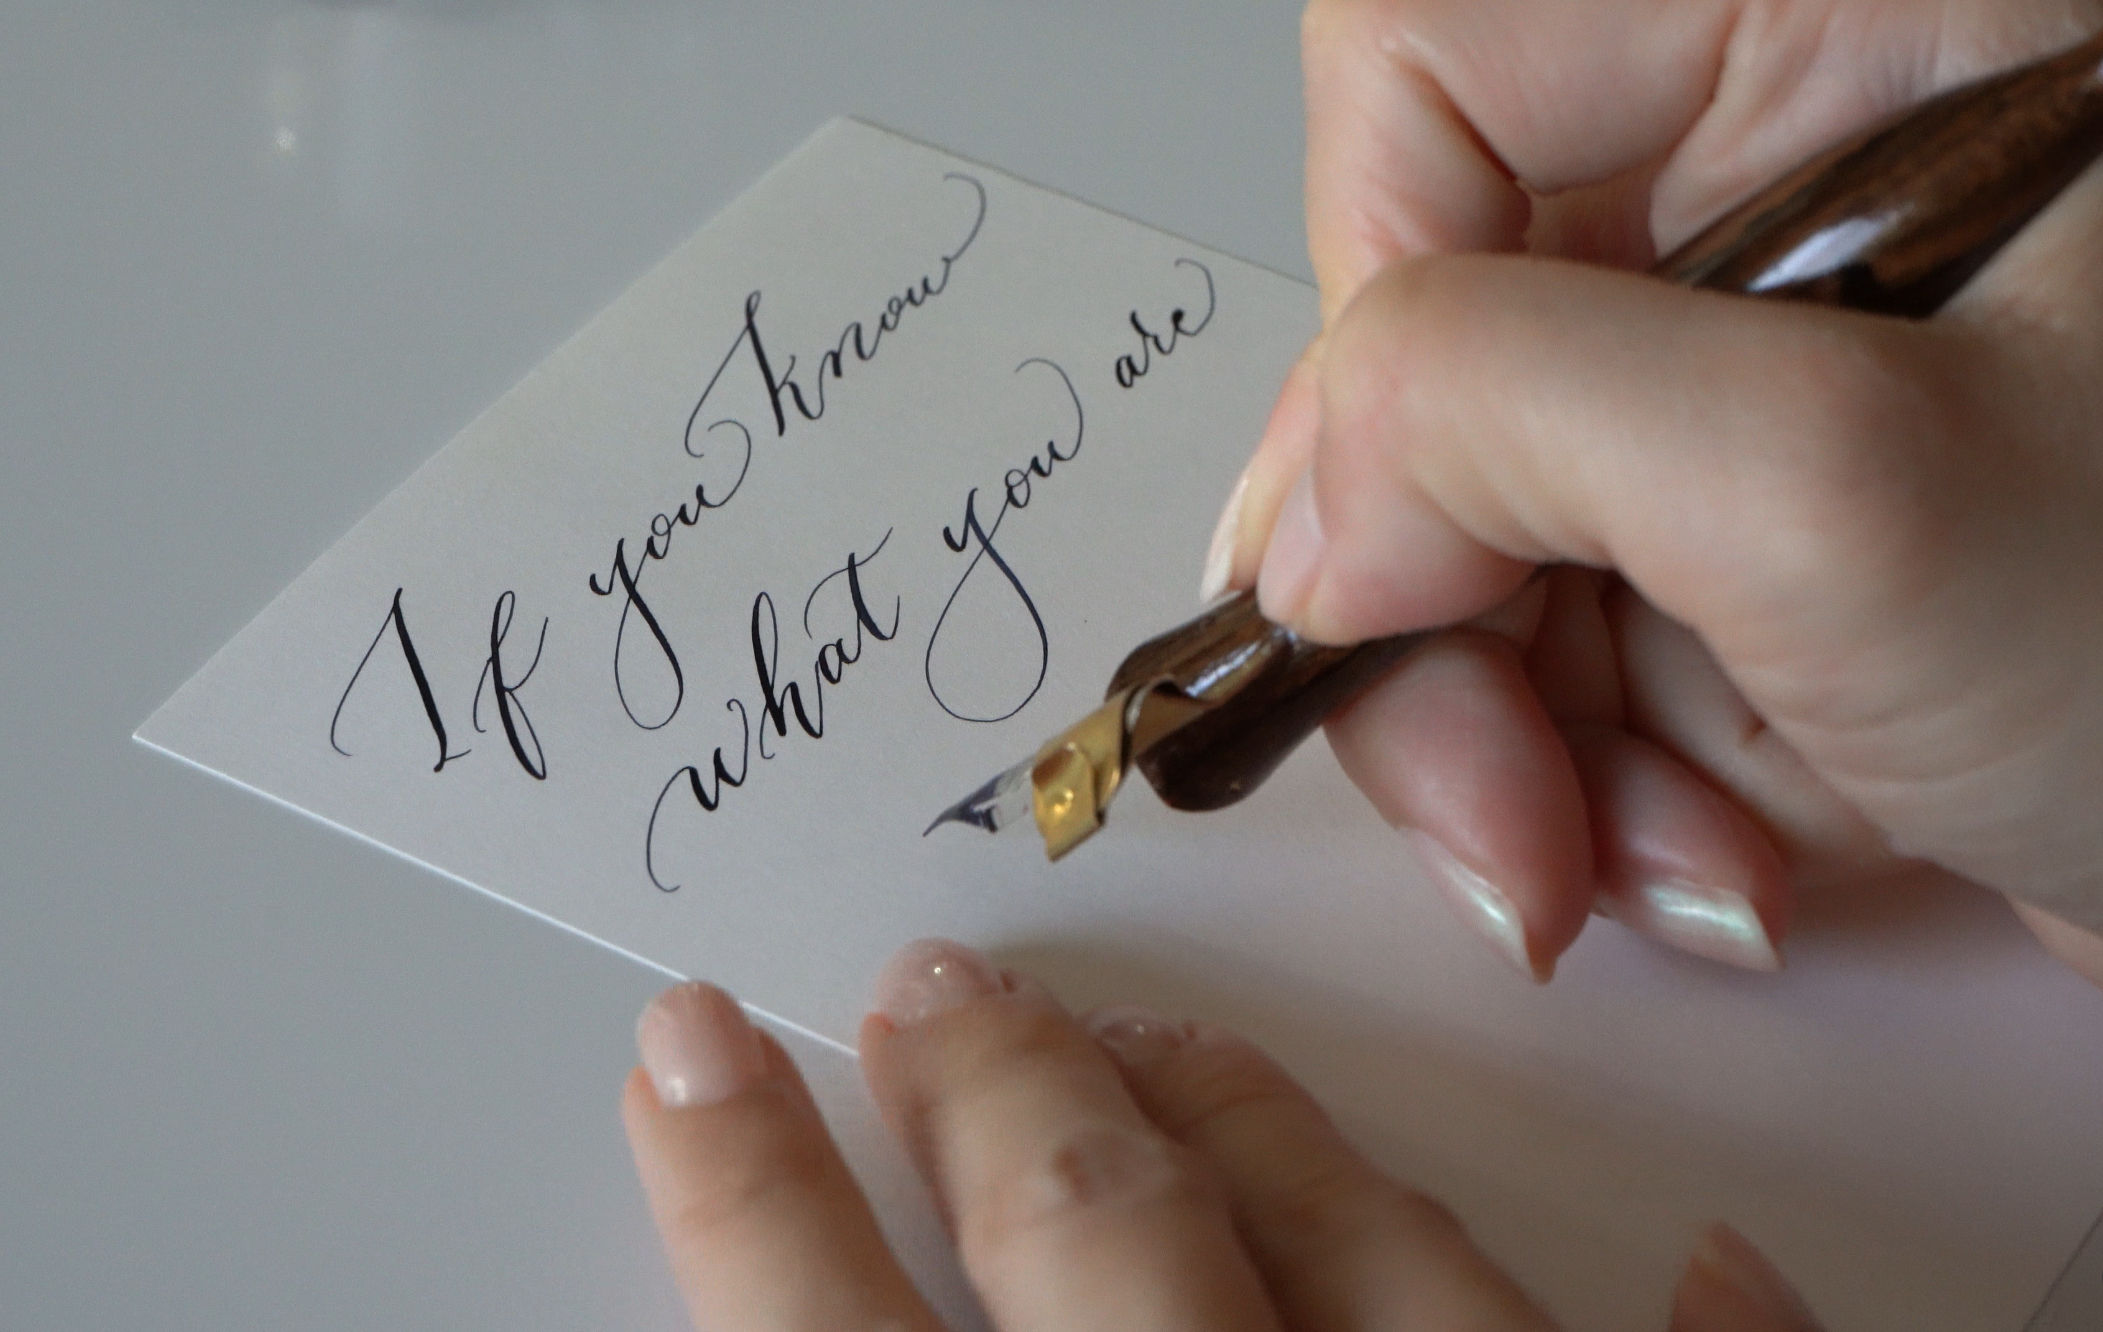 If you know
what you are